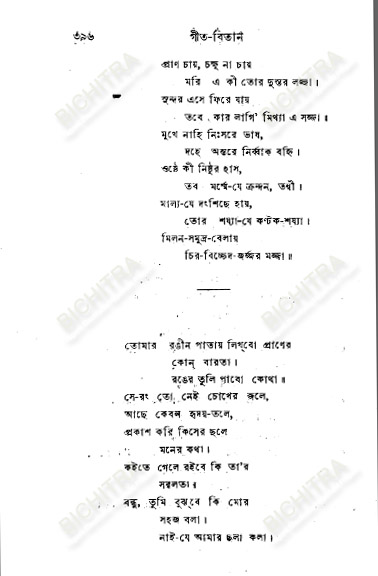 ৩৯৬
গীত-বিতান
প্রাণ চায়, চক্ষু না চায়
মরি এ কী তোর দুস্তর লজ্জা।
সুন্দর এসে ফিরে যায়
তবে কার লাগি' মিথ্যা এ সজ্জা॥
মুখে নাহি নিঃসরে ভাষ,
দহে অন্তরে নির্ব্বাক বহ্নি।
ওষ্ঠে কী নিষ্ঠুর হাস,
তব মর্ম্মে-যে ক্রন্দন, তন্বী।
মাল্য-যে দংশিছে হায়,
তোর শয্যা-যে কণ্টক-শয্যা।
মিলন-সমুদ্র-বেলায়
চির-বিচ্ছেদ-জর্জ্জর মজ্জা॥
তোমার রঙীন পাতায় লিখ্‌বো প্রাণের
কোন্ বারতা।
রঙের তুলি পাবো কোথা॥
সে-রং তো নেই চোখের জলে,
আছে কেবল হৃদয়-তলে,
প্রকাশ করি কিসের ছলে
মনের কথা।
কইতে গেলে রইবে কি তা'র
সরলতা।
বন্ধু, তুমি বুঝ্‌বে কি মোর
সহজ বলা।
নাই-যে আমার ছলা কলা।
BICHITRA
BICHITRA
BICHITRA
BICHITRA
BICHITRA
BICHITRA